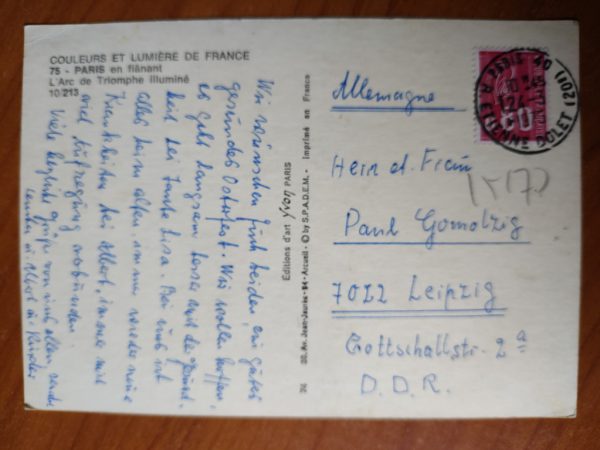 COULEURS ET LUMIÈRE DE FRANCE
75 - PARIS en flânant
L'Arc de Triomphe illuminé
10/213
Wir wünschen Euch beiden, ein gutes
gesundes Osterfest. Wir wollen hoffen,
es geht langsam besser mit der Gesund-
heit bei Tante Lisa. Bei uns ist
alles beim alten immer wieder neue
Krankheiten bei Albert, immer mit
viel Aufregung verbunden.
Viele herzliche Grüße von uns allen
Editions d'art yvon PARIS
30, Av. Jean-Jaurès - 94 - Arcueil - © by S.P.A.D.E.M. - Imprimé en France
Allemagne
Herr u. Frau
Paul Gomolzig
7022 Leipzig
Gottschallstr. 2a
D.D.R.
ETIENNE DOLET